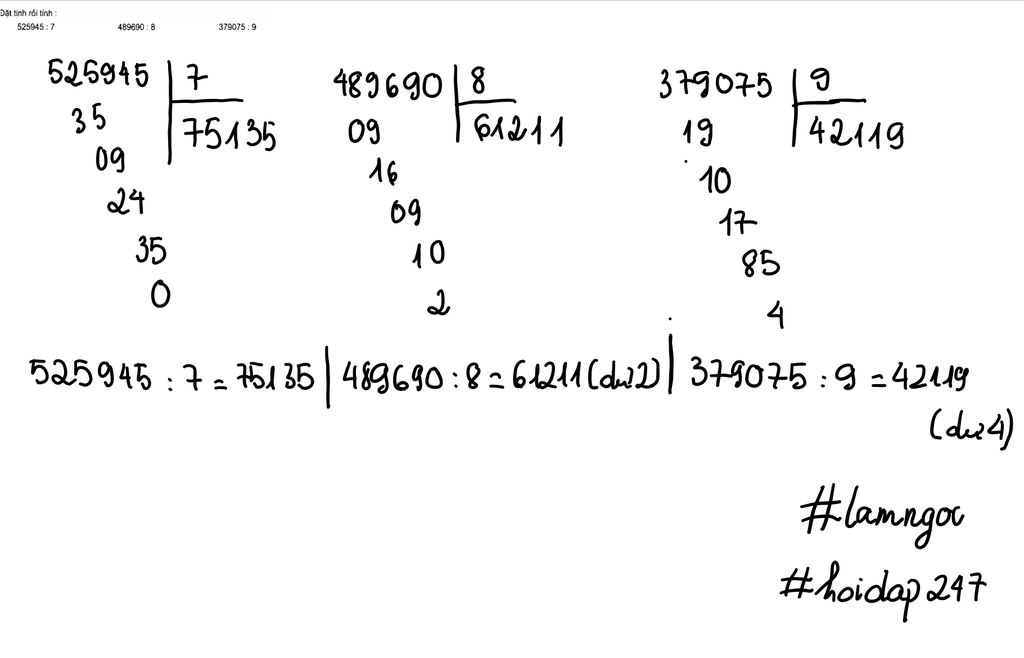 Đặt tính rồi tính :
525945 : 7 489690 : 8 379075 : 9
525945 7
35 75135
09
24
35
0
489690 8
09 61211
16
09
10
2
379075 9
19 42119
10
17
85
4
525945 : 7 = 75135 | 489690 : 8 = 61211 (dư 2) | 379075 : 9 = 42119
(dư 4)
#lamngoc
#hoidap247